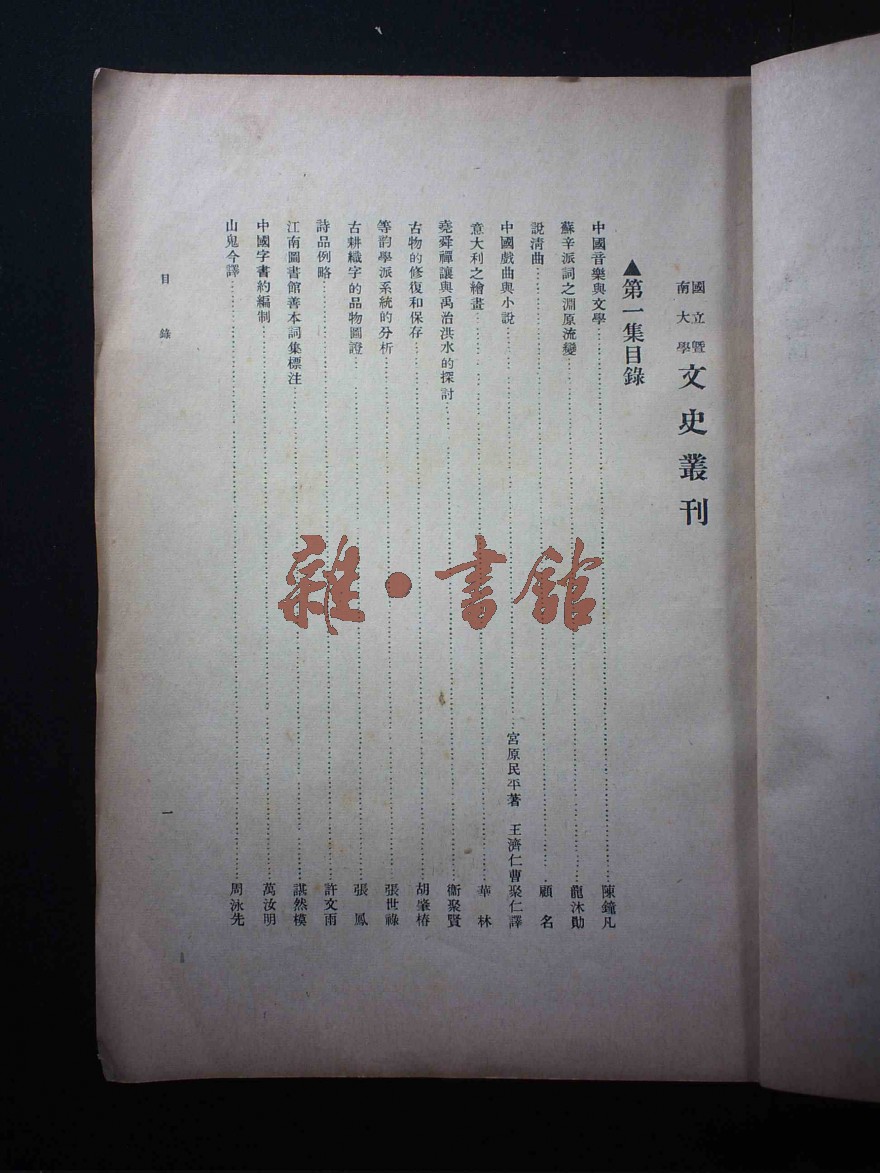 國立暨南大學 文史叢刊
▲第一集目錄
中國音樂與文學……陳鐘凡
蘇辛派詞之淵原流變……龍沐勛
說淸曲……顧名
中國戲曲與小說……宮原民平著 王濟仁曹聚仁譯
意大利之繪畫……華林
堯舜禪讓與禹治洪水的探討……衞聚賢
古物的修復和保存……胡肇椿
等韵學派系統的分析……張世祿
古耕織字的品物圖證……張鳳
詩品例略……許文雨
江南圖書館善本詞集標注……諶然模
中國字書約編制……萬汝明
山鬼今譯……周泳先
目錄
一
雜·書館